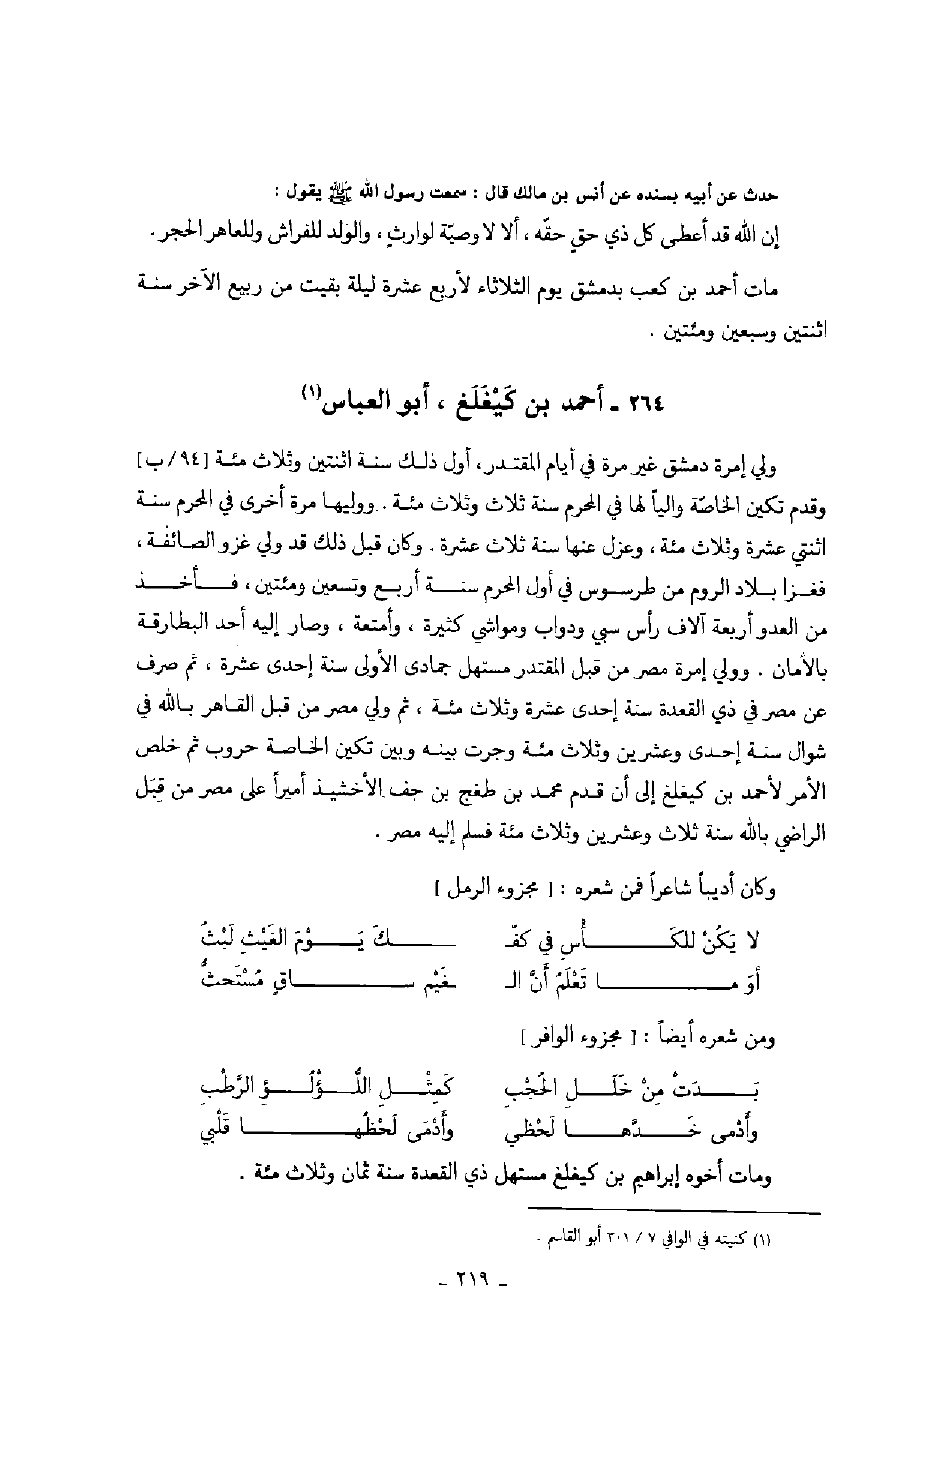 حدث عن أبيه بسنده عن أنس بن مالك قال : سمعت رسول الله ﷺ يقول :
إن الله قد أعطى كل ذي حق حقّه ، ألا لا وصيّة لوارثٍ ، والولد للفراش وللعاهر الحجر .
مات أحمد بن كعب بدمشق يوم الثلاثاء لأربع عشرة ليلة بقيت من ربيع الآخر سنة
اثنتين وسبعين ومئتين .
٢٦٤ ـ أحمد بن كَيْغَلَغ ، أبو العباس(١)
ولي إمرة دمشق غير مرة في أيام المقتدر، أول ذلك سنة اثنتين وثلاث مئة [٩٤/ب]
وقدم تكين الخاصّة والياً لها في المحرم سنة ثلاث وثلاث مئة . ووليها مرة أخرى في المحرم سنة
اثنتي عشرة وثلاث مئة ، وعزل عنها سنة ثلاث عشرة . وكان قبل ذلك قد ولي غزو الصائفة ،
فغزا بلاد الروم من طرسوس في أول المحرم سنة أربع وتسعين ومئتين ، فأخذ
من العدو أربعة آلاف رأس سبي ودواب ومواشي كثيرة ، وأمتعة ، وصار إليه أحد البطارقة
بالأمان . وولي إمرة مصر من قبل المقتدر مستهل جمادى الأولى سنة إحدى عشرة ، ثم صرف
عن مصر في ذي القعدة سنة إحدى عشرة وثلاث مئة ، ثم ولي مصر من قبل القاهر بالله في
شوال سنة إحدى وعشرين وثلاث مئة وجرت بينه وبين تكين الخاصة حروب ثم خلص
الأمر لأحمد بن كيغلغ إلى أن قدم محمد بن طغج بن جف الأخشيذ أميراً على مصر من قبَل
الراضي بالله سنة ثلاث وعشرين وثلاث مئة فسلم إليه مصر .
وكان أديباً شاعراً فمن شعره : [ مجزوء الرمل ]
لا يَكُنْ للكأسِ في كفّـ ـكَ يَوْمَ الغَيْثِ لَبْثُ
أوَ ما تَعْلَمُ أنَّ الـ ـغَيْم ساقٍ مُسْتَحثُّ
ومن شعره أيضاً : [ مجزوء الوافر ]
بَدَتْ مِنْ خَلَلِ الحُجْبِ كَمِثْلِ اللُّؤْلُؤِ الرَّطْبِ
وأَدْمى خَدَّها لَحْظي وأَدْمَى لَحْظُها قَلْبي
ومات أخوه إبراهيم بن كيغلغ مستهل ذي القعدة سنة ثمان وثلاث مئة .
(١) كنيته في الوافي ٧ / ٣٠١ أبو القاسم .
ـ ٢١٩ ـ